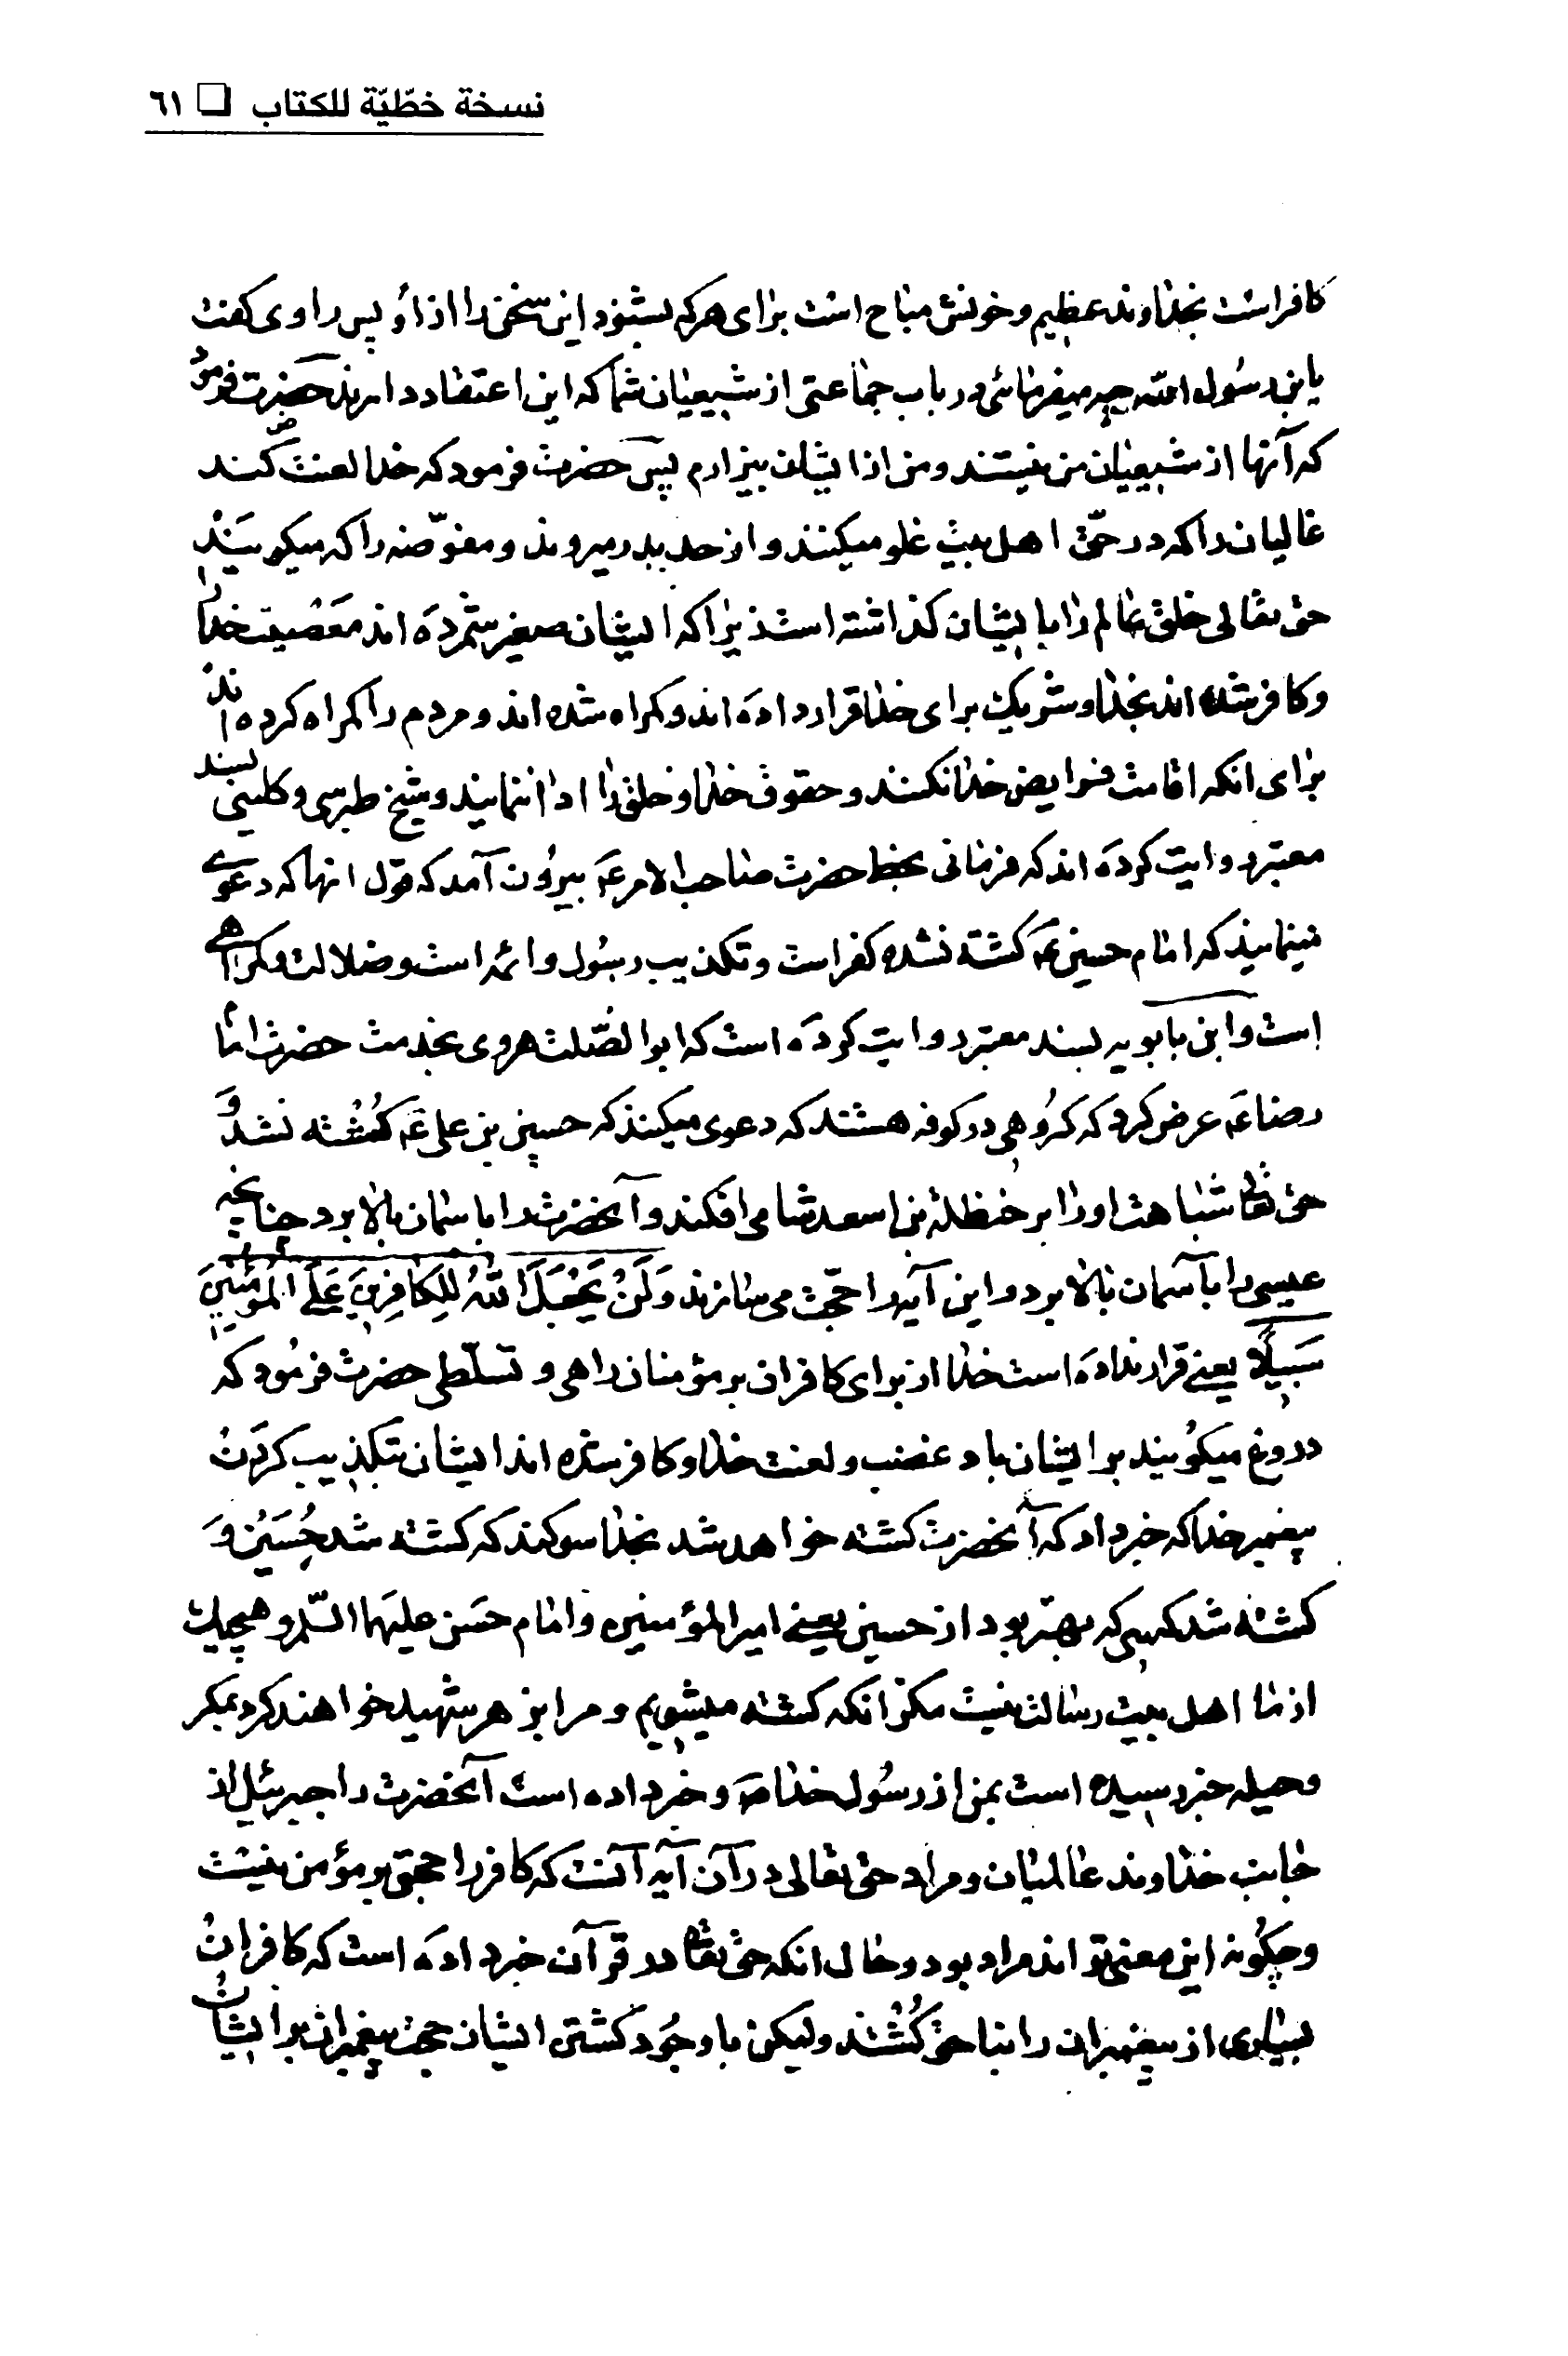 نسخة خطّيّة للكتاب □ ٦١
كافراست بخداوند عظيم و خونش مباح است براى هر كه بشنود اين سخن را از او پس راوى كفت
يابن رسول الله چه ميفرمائى در باب جماعتى از شيعيان شما كه اين اعتقاد دارند حضرت فرمود
كه آنها از شيعيان من نيستند و من از ايشان بيزارم پس حضرت فرمود كه خدا لعنت كند
غاليان را كه در حقّ اهل بيت غلو ميكنند و از حد بدر ميروند و مفوّضه را كه ميكويند
حق تعالى خلق عالم را بايشان كذاشته است زيرا كه ايشان صغير شمرده اند معصيت خدا را
و كافر شده اند بخدا و شريك براى خدا قرار داده اند و كمراه شده اند و مردم را كمراه كرده اند
براى انكه اقامت فرايض خدا نكنند و حقوق خدا و خلق را ادا ننمايند و شيخ طبرسى و كلينى بسند
معتبر روايت كرده اند كه فرمانى بخط حضرت صاحب الامر ع بيرون آمد كه قول انها كه دعوى
مينمايند كه امام حسين ع كشته نشده كفر است و تكذيب رسول و ائمه است و ضلالت و كمراهى
است و ابن بابويه بسند معتبر روايت كرده است كه ابوالصّلت هروى بخدمت حضرت امام
رضا ع عرض كرد كه كروهى در كوفه هستند كه دعوى ميكنند كه حسين بن على ع كُشته نشد و
حق تعالى شباهت او را بر حنظلة بن اسعد شامى افكند و آنحضرت را باسمان بالا برد چنانچه
عيسى را بآسمان بالا برد و اين آيه را حجّت مى سازند وَلَنْ يَجْعَلَ اللّهُ لِلكَافِرِينَ عَلَى المُؤمِنِينَ
سَبِيلًا يعنى قرار نداده است خدا از براى كافران بر مؤمنان راهى و تسلّطى حضرت فرمود كه
دروغ ميكويند بر ايشان باد غضب و لعنت خدا و كافر شده اند ايشان بتكذيب كردن
پيغمبر خدا كه خبر داد كه آنحضرت كشته خواهد شد بخدا سوكند كه كشته شد حُسَين و
كشته شد كسى كه بهتر بود از حسين يعنى امير المؤمنين و امام حسن عليهما السّلم و هيچيك
از ما اهل بيت رسالت نيست مكر انكه كشته ميشويم و مرا بزهر شهيد خواهند كرد بمكر
و حيله خبر رسيده است بمن از رسول خدا ص و خبر داده است آنحضرت را جبرئيل از
جانب خداوند عالميان و مراد حق تعالى در آن آيه آنست كه كافر را حجتى بر مؤمن نيست
و چكونه اين معنى تواند مراد بود و حال انكه حق تعالى در قرآن خبر داده است كه كافران
بسيارى از پيغمبران را بناحق كُشتند وليكن با وجود كشتن ايشان حجت پيغمبران بر ايشان